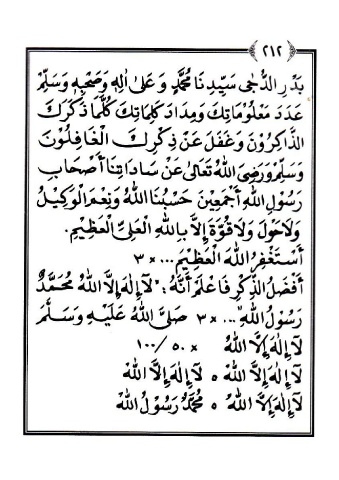 ٢١٢
بَدْرِ الدُّجٰى سَيِّدِنَا مُحَمَّدٍ وَعَلىٰ اٰلِهٖ وَصَحْبِهٖ وَسَلِّمْ
عَدَدَ مَعْلُوْمَاتِكَ وَمِدَادَ كَلِمَاتِكَ كُلَّمَا ذَكَرَكَ
الذَّاكِرُوْنَ وَغَفَلَ عَنْ ذِكْرِكَ الْغَافِلُوْنَ
وَسَلِّمْ وَرَضِيَ اللهُ تَعَالىٰ عَنْ سَادَاتِنَا أَصْحَابِ
رَسُوْلِ اللهِ أَجْمَعِيْنَ حَسْبُنَا اللهُ وَنِعْمَ الْوَكِيْلُ
وَلَا حَوْلَ وَلَا قُوَّةَ إِلَّا بِاللهِ الْعَلِيِّ الْعَظِيْمِ.
أَسْتَغْفِرُ اللهَ الْعَظِيْمَ... × ٣
أَفْضَلُ الذِّكْرِ فَاعْلَمْ أَنَّهُ: لَآ إِلٰهَ إِلَّا اللهُ مُحَمَّدٌ
رَسُوْلُ اللهِ... × ٣ صَلَّى اللهُ عَلَيْهِ وَسَلَّمَ
لَآ إِلٰهَ إِلَّا اللهُ × ٥٠/١٠٠
لَآ إِلٰهَ إِلَّا اللهُ ٥ لَآ إِلٰهَ إِلَّا اللهُ
لَآ إِلٰهَ إِلَّا اللهُ ٥ مُحَمَّدٌ رَسُوْلُ اللهِ